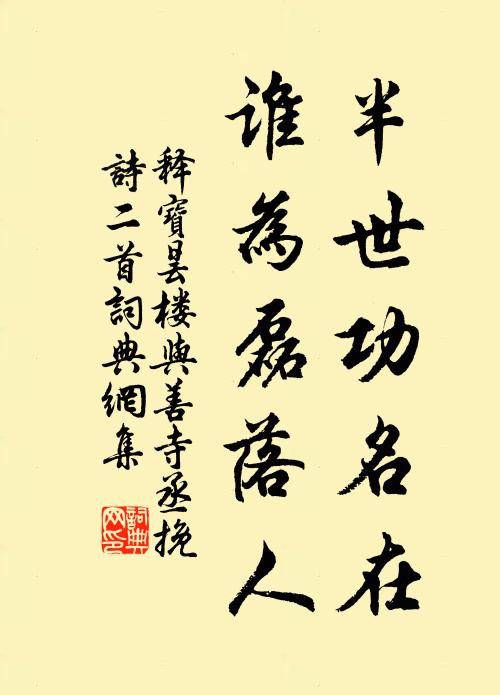 半世功名在
誰為磊落人
释寶曇楼與善寺丞挽
詩二首詞典網集
詞典
网印